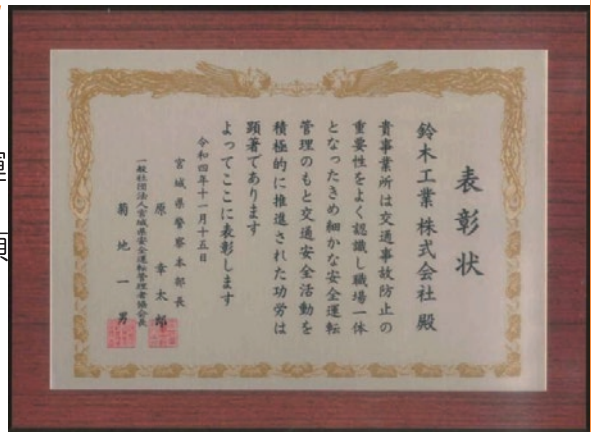 表彰状
鈴木工業株式会社 殿
貴事業所は交通事故防止の
重要性をよく認識し職場一体
となったきめ細かな安全運転
管理のもと交通安全活動を
積極的に推進された功労は
顕著であります
よってここに表彰します
令和四年十一月十五日
宮城県警察本部長
原 幸太郎
一般社団法人宮城県安全運転管理者協会会長
菊地一男